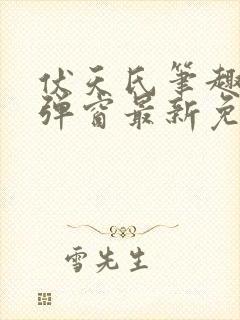 伏天氏笔趣
弹窗最新免
雪先生